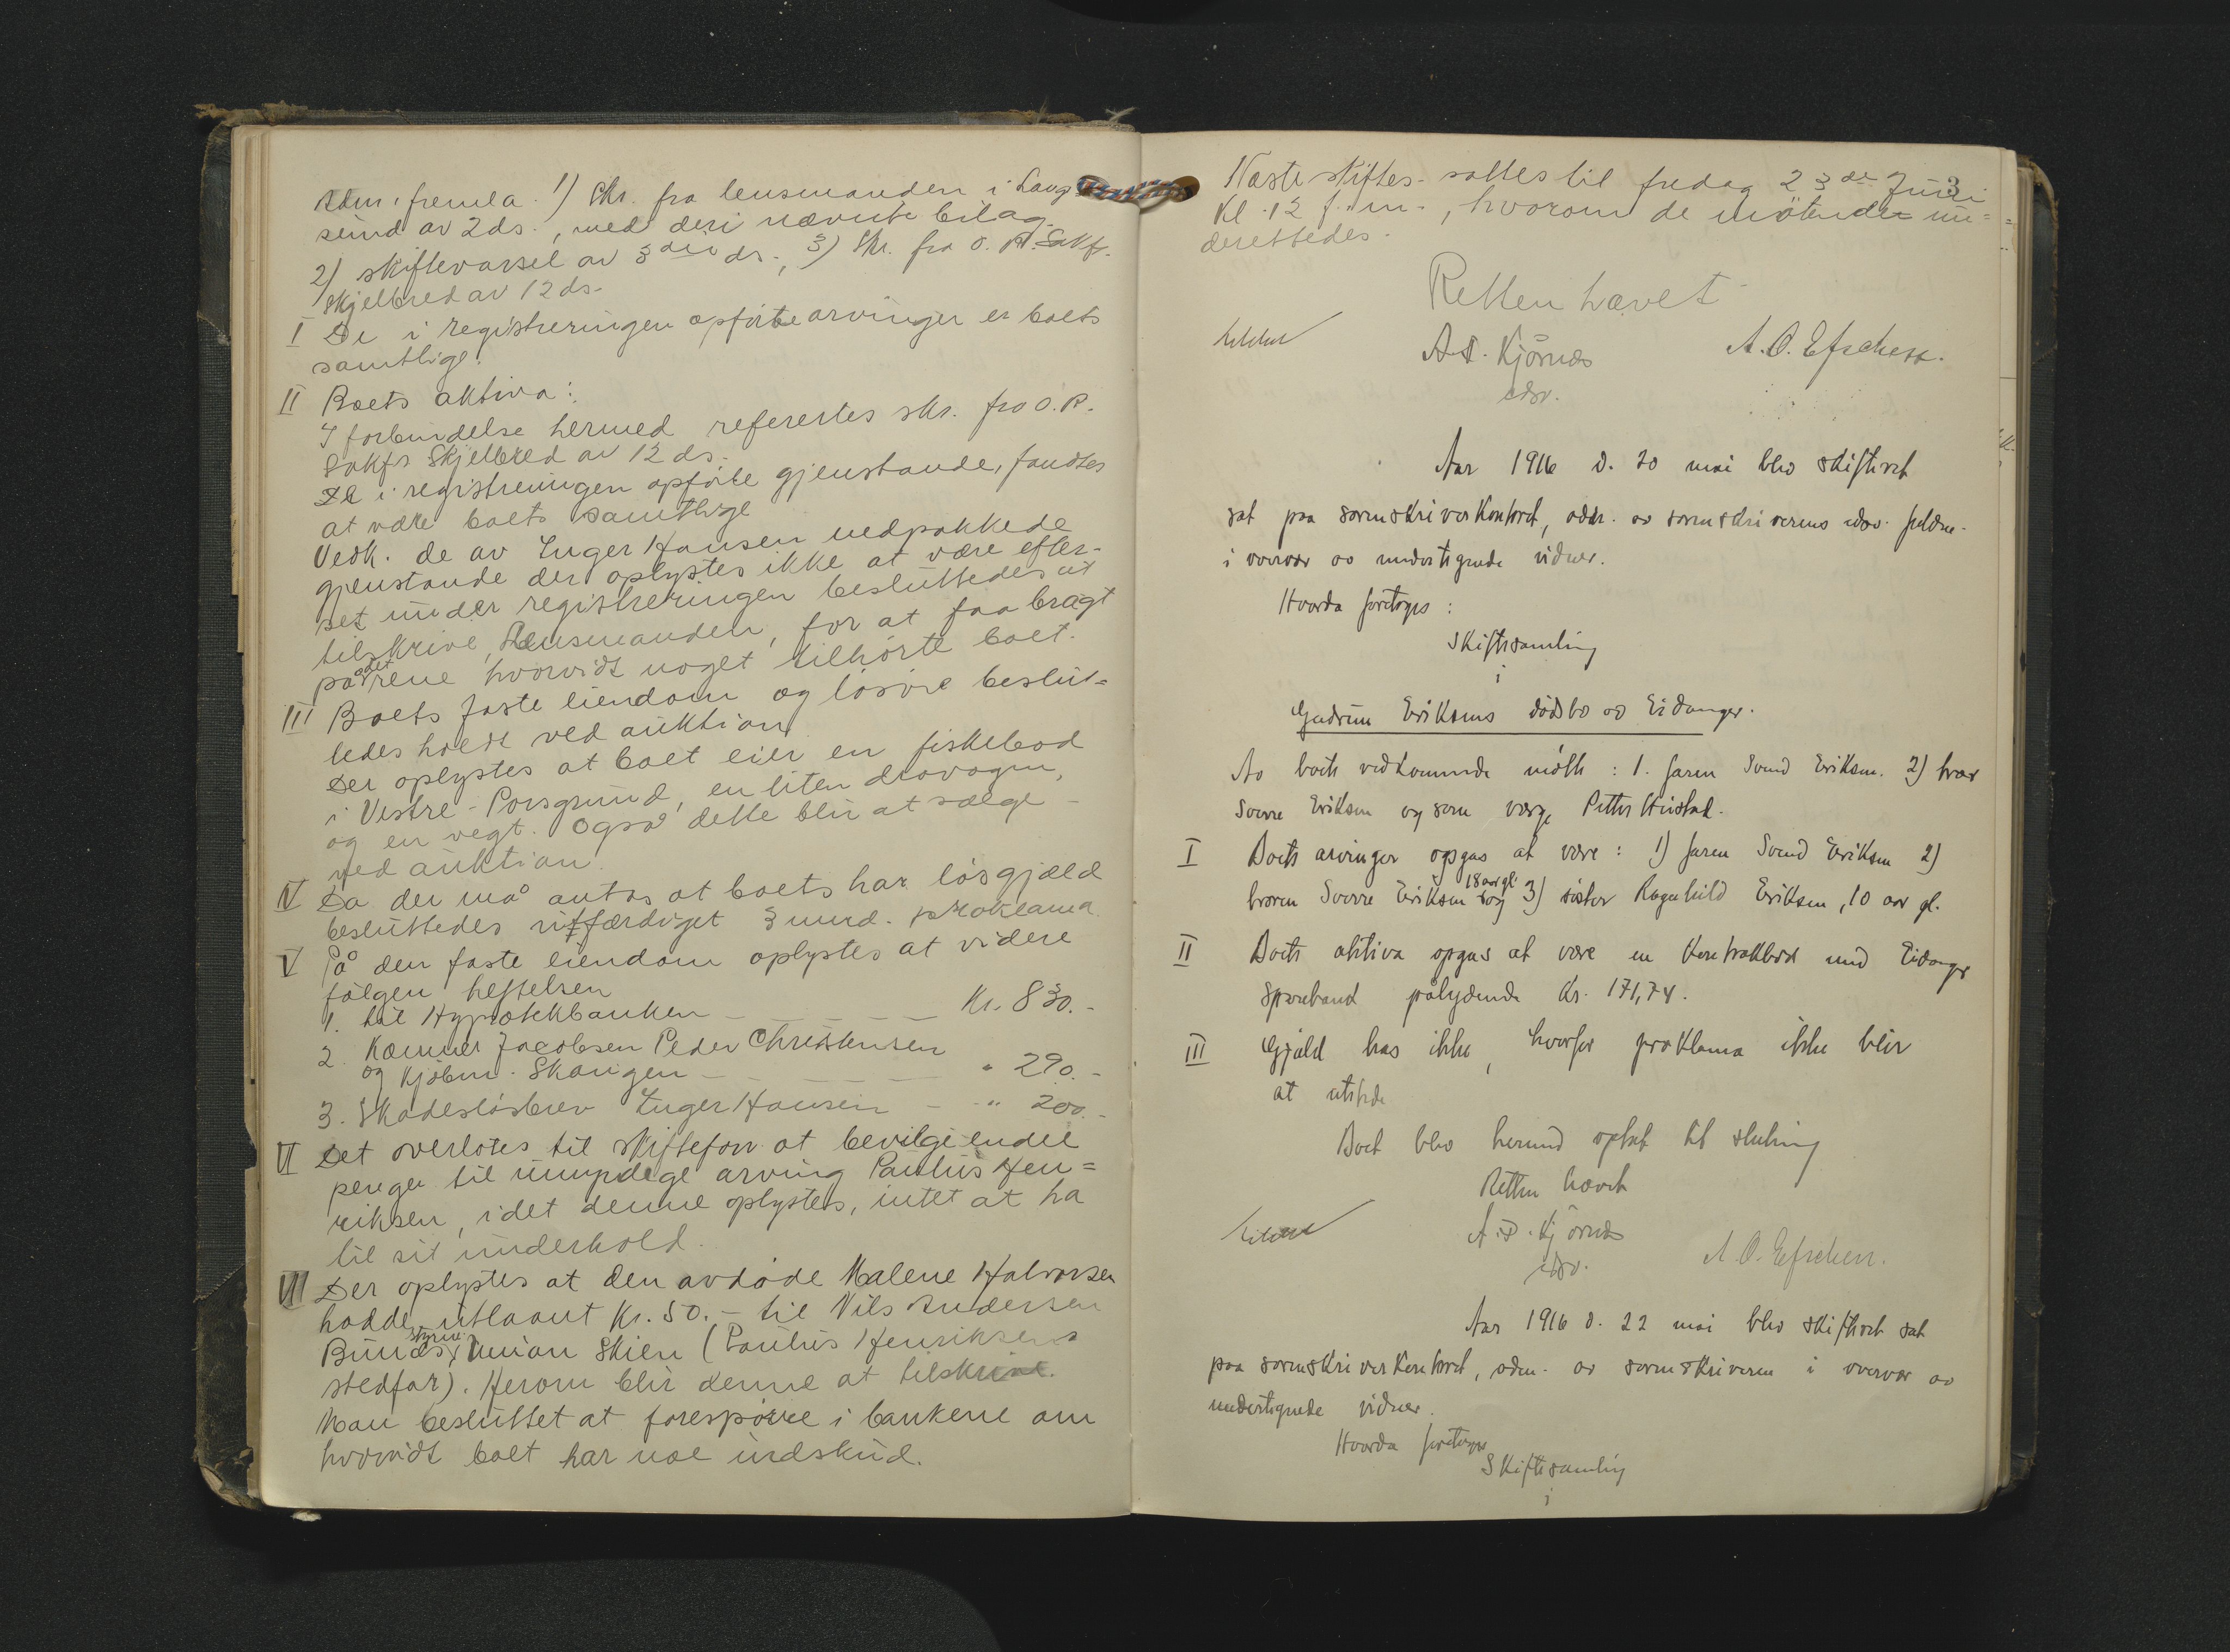 Adm. fremla. 1) Skr. fra lensmanden i Lang-
sund av 2 ds., med deri nævnte bilag.
2) skiftevarsel av 3die ds., 3) Skr. fra O.R. Sakf.
Skjelbred av 12 ds.
I De i registreringen opførte arvinger er boets
samtlige.
II Boets aktiva:
I forbindelse hermed refereres skr. fra O.R.
Sakfr Skjelbred av 12 ds.
De i registreringen opførte gjenstande, fandtes
at være boets samtlige
Vedk. de av Inger Hansen nedpakkede
gjenstande der oplystes ikke at være efter-
set under registreringen besluttedes at
tilskrive Lensmanden, for at faa bragt
på det rene hvorvidt noget tilhørte boet.
III Boets faste eiendom og løsøre beslut=
tedes holdt ved auktion
Der oplystes at boet eier en fiskebod
i Vestre-Porsgrund, en liten dravogn,
og en vegt. Også dette blir at sælge
ved auktion.
IV Da der må antas at boets har løsgjæld
besluttedes utfærdiget 3 mnd. proklama
V På den faste eiendom oplystes at videre
følgen heftelsen
1. til Hypotekbanken - - - - - Kr. 830.-
2. Kæmner Jacobsen Peder Christensen
og Kjøbm. Skougen - - - - - " 290.-
3. Skadesløsbrev Inger Hansen - - " 200.-
VI Det overlotes til skifteforv. at bevilge endel
penger til umyndige arving Paulus Hen=
riksen, idet denne oplystes, intet at ha
til sit underhold.
VII Der oplystes at den avdøde Malene Halvorsen
hadde utlaant Kr. 50.- til Nils Andersen
Bunds, Union Skien (Paulus Henriksens
stedfar). Herom blir denne at tilskrive.
Man besluttet at forespørre i bankene om
hvorvidt boet har noe indskud.
3
Næste skiftes. sattes til fredag 23de Juni
Kl. 12 f.m., hvorom de møtende un=
derettedes.
Retten hævet
A. S. Kjörnæs
edsv.
Aar 1916 d. 20 mai blev skifteret
sat paa sorenskriverkontoret, adm. av sorenskriverens edsv. fuldm.
i overvær av undertegnede vidner.
Hvorda foretoges:
Skiftesamling
i
Gudrun Eriksens dødsbo av Eidanger.
Av boets vedkommende møtte: 1. faren Svend Eriksen. 2) bror
Sverre Eriksen og som verge Petter
I Boets arvinger opgas at være: 1) faren Svend Eriksen 2)
broren Sverre Eriksen 18 aar gl. og 3) søster Ragnhild Eriksen, 10 aar gl.
II Boets aktiva opgas at være en Kontraktbok med Eidanger
Sparebank pålydende Kr. 171,74.
III Gjæld has ikke, hvorfor proklama ikke blir
at utstede
Boet blev herund optat til slutning
Retten hævet
A. S. Kjörnæs
edsv.
Aar 1916 d. 22 mai blev skifteret sat
paa sorenskriverkontoret, adm. av sorenskriveren i overvær av
undertegnede vidner.
Hvorda foretoges
Skiftesamling
i